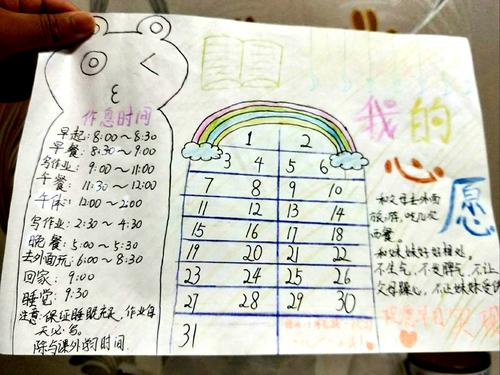 作息时间
早起:8:00~8:30
早餐:8:30~9:00
写作业:9:00~11:00
午餐:11:30~12:00
午休:12:00~2:00
写作业:2:30~4:30
晚餐:5:00~5:30
去外面玩:6:00~8:30
回家:9:00
睡觉:9:30
注意:保证睡眠充足,作业每
天必写。
除与课外学习时间
1 2
3 4 5 6
7 8 9 10
11 12 13 14
15 16 17 18
19 20 21 22
23 24 25 26
27 28 29 30
31
我的
心愿
和父母去外面
旅游,吃几次
西餐。
和妹妹好好相处,
不生气,不发脾气,不让
父母操心,不让妹妹受伤